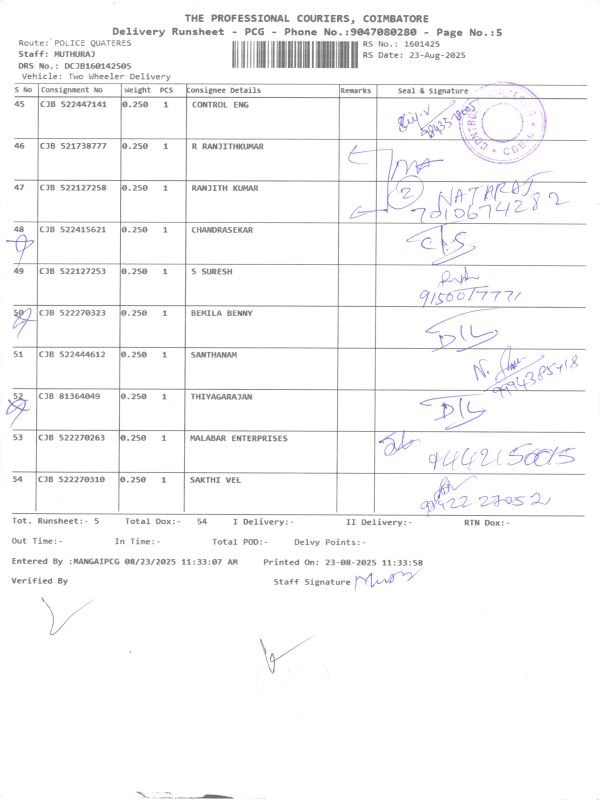 THE PROFESSIONAL COURIERS, COIMBATORE
Delivery Runsheet - PCG - Phone No.:9047080280 - Page No.:5
Route: POLICE QUATERES
RS No.: 1601425
Staff: MUTHURAJ
RS Date: 23-Aug-2025
DRS No.: DCJB160142505
Vehicle: Two Wheeler Delivery
S No Consignment No Weight PCS Consignee Details Remarks Seal & Signature
45 CJB 522447141 0.250 1 CONTROL ENG
46 CJB 521738777 0.250 1 R RANJITHKUMAR
47 CJB 522127258 0.250 1 RANJITH KUMAR 2 NATARAJ
7010674282
48 CJB 522415621 0.250 1 CHANDRASEKAR C/S
49 CJB 522127253 0.250 1 S SURESH
9150017771
50 CJB 522270323 0.250 1 BEMILA BENNY D/L
51 CJB 522444612 0.250 1 SANTHANAM
52 CJB 81364049 0.250 1 THIYAGARAJAN D/L
53 CJB 522270263 0.250 1 MALABAR ENTERPRISES
9442150015
54 CJB 522270310 0.250 1 SAKTHI VEL
98422 27052
Tot. Runsheet:- 5 Total Dox:- 54 I Delivery:- II Delivery:- RTN Dox:-
Out Time:- In Time:- Total POD:- Delvy Points:-
Entered By :MANGAIPCG 08/23/2025 11:33:07 AM Printed On: 23-08-2025 11:33:58
Verified By Staff Signature